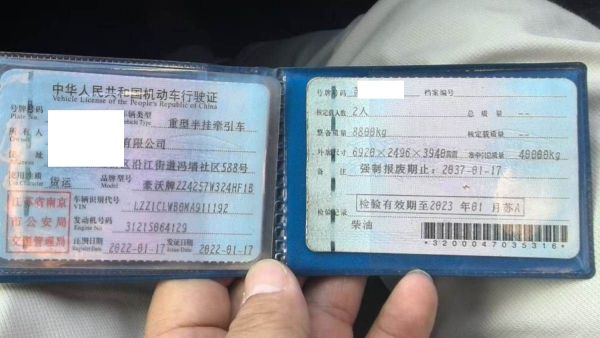 中华人民共和国机动车行驶证
Vehicle License of the People's Republic of China
号牌号码
Plate No.
车辆类型
Vehicle Type
重型半挂牵引车
所有人
有限公司
住址
区沿江街道冯墙社区588号
使用性质
Use Character
货运
品牌型号
Model
豪沃牌ZZ4257W324HF1B
江苏省南京
市公安局
交通管理局
车辆识别代号
VIN
LZZ1CLWB0MA911192
发动机号码
Engine No
31215064129
注册日期
Register Date
2022-01-17
发证日期
Issue Date
2022-01-17
号牌号码
档案编号
核定载人数
2人
总质量
--
整备质量
8800kg
核定载质量
--
外廓尺寸
6920×2496×3940
准牵引总质量
40000kg
备注
强制报废期止:2037-01-17
检验有效期至2023年01月苏A
检验记录
柴油
*3200047035316*